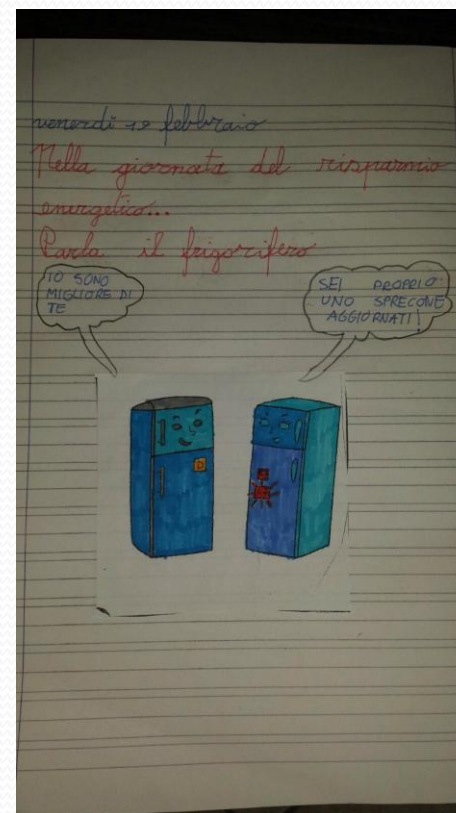 venerdì 19 febbraio
Nella giornata del risparmio
energetico...
Parla il frigorifero
IO SONO
MIGLIORE DI
TE
SEI PROPRIO
UNO SPRECONE
AGGIORNATI!
D